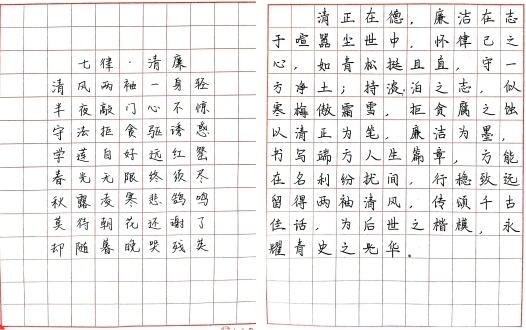 七律·清廉
清风两袖一身轻
半夜敲门心不惊
守法拒食驱诱惑
学莲自好远红罂
春光无限终须尽
秋露凌寒悲鸽鸣
莫待朝花还谢了
却随暮晚哭残英
清正在德，廉洁在志
于喧嚣尘世中，怀律己之
心，如青松挺且直，守一
方净土；持淡泊之志，似
寒梅傲霜雪，拒贪腐之蚀
以清正为笔，廉洁为墨，
书写端方人生篇章，方能
在名利纷扰间，行稳致远
留得两袖清风，传颂千古
佳话，为后世之楷模，永
耀青史之光华。